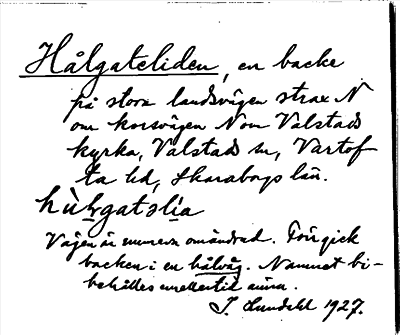 Hålgateliden, en backe
på stora landsvägen strax N
om korsvägen N om Valstads
kyrka, Valstads sn, Vartof
ta hd, Skaraborgs län.
hù̀lgatəlìa
Vägen är numera omändrad. Förr gick
backen i en hålväg. Namnet bi-
behålles emellertid ännu.
J. Lundahl 1927.